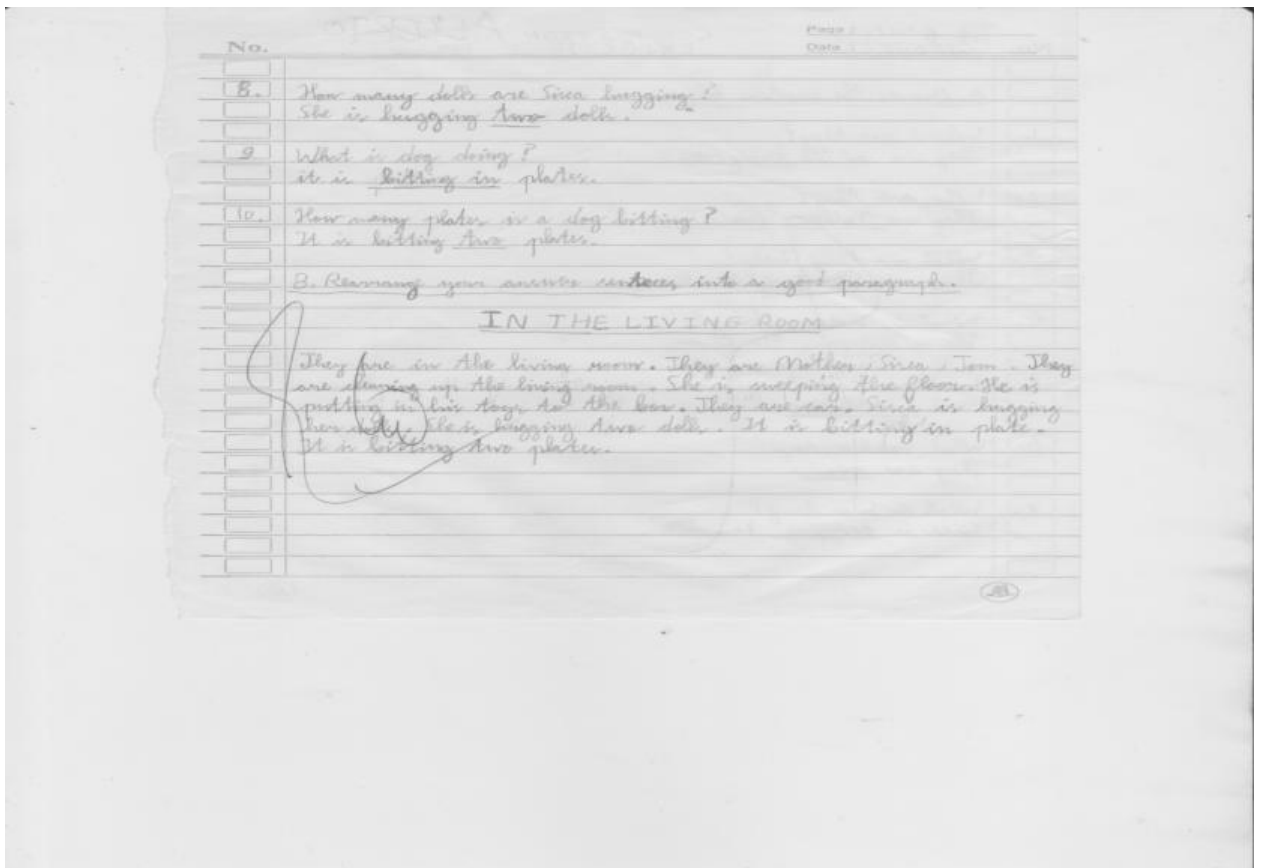 No.
Page :
Date :
8. How many dolls are Sisca hugging ?
She is hugging two dolls.
9 What is dog doing ?
it is bitting in plates.
10. How many plates is a dog bitting ?
It is bitting two plates.
B. Rearrange your answer senteces into a good paragraph.
IN THE LIVING ROOM
They are in the living room. They are Mother, Sisca, Tom. They
are cleaning up the living room. She is sweeping the floor. He is
putting in his toys to the box. They are car. Sisca is hugging
her She is hugging two dolls. It is bitting in plate.
It is bitting two plates.